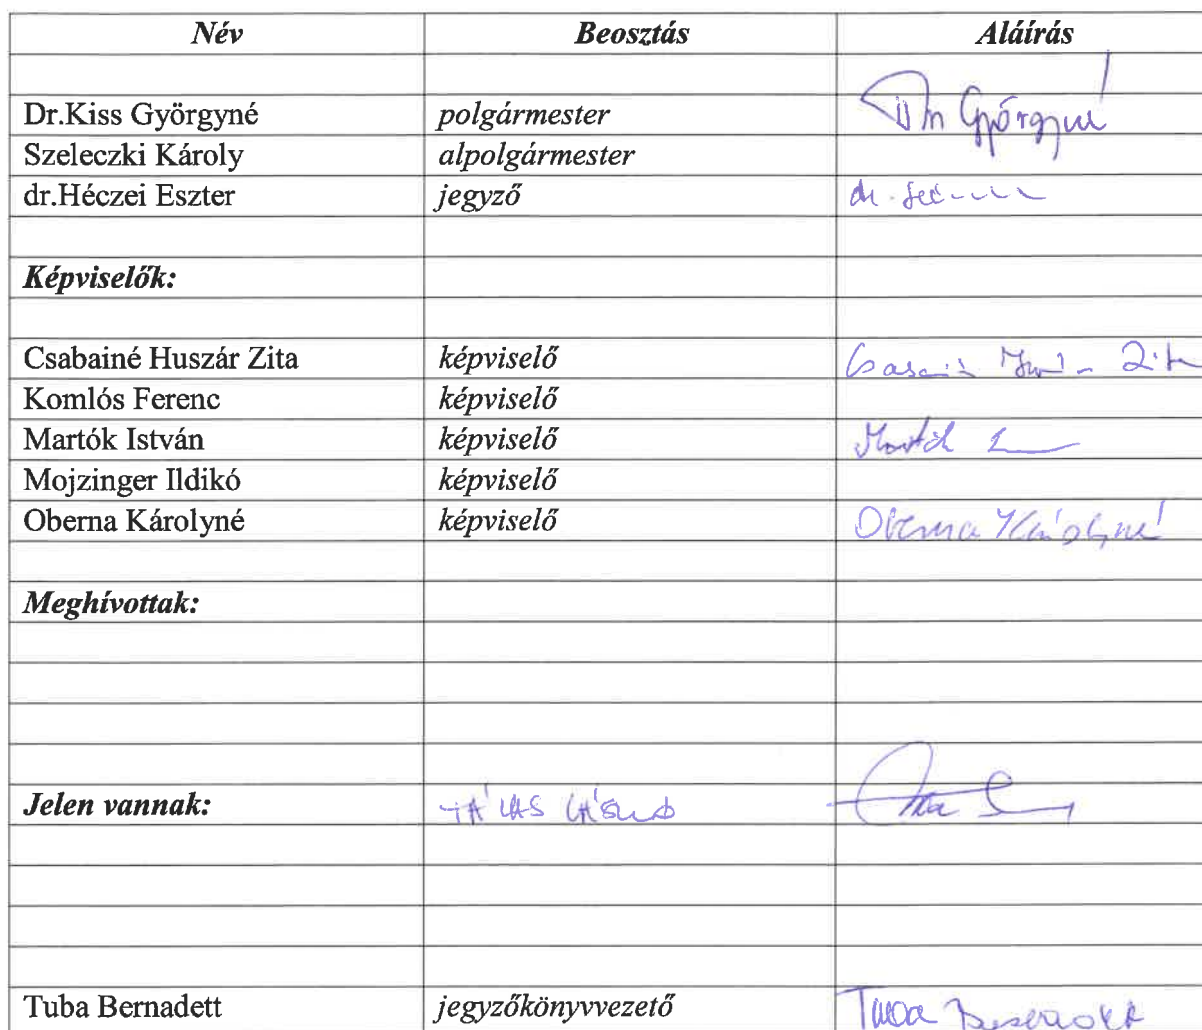 Név Beosztás Aláírás
Dr.Kiss Györgyné polgármester Györgyné
Szeleczki Károly alpolgármester
dr.Héczei Eszter jegyző dr.
Képviselők:
Csabainé Huszár Zita képviselő Zita
Komlós Ferenc képviselő
Martók István képviselő Martók
Mojzinger Ildikó képviselő
Oberna Károlyné képviselő Oberna Károlyné
Meghívottak:
Jelen vannak:
Tuba Bernadett jegyzőkönyvvezető Tuba Bernadett